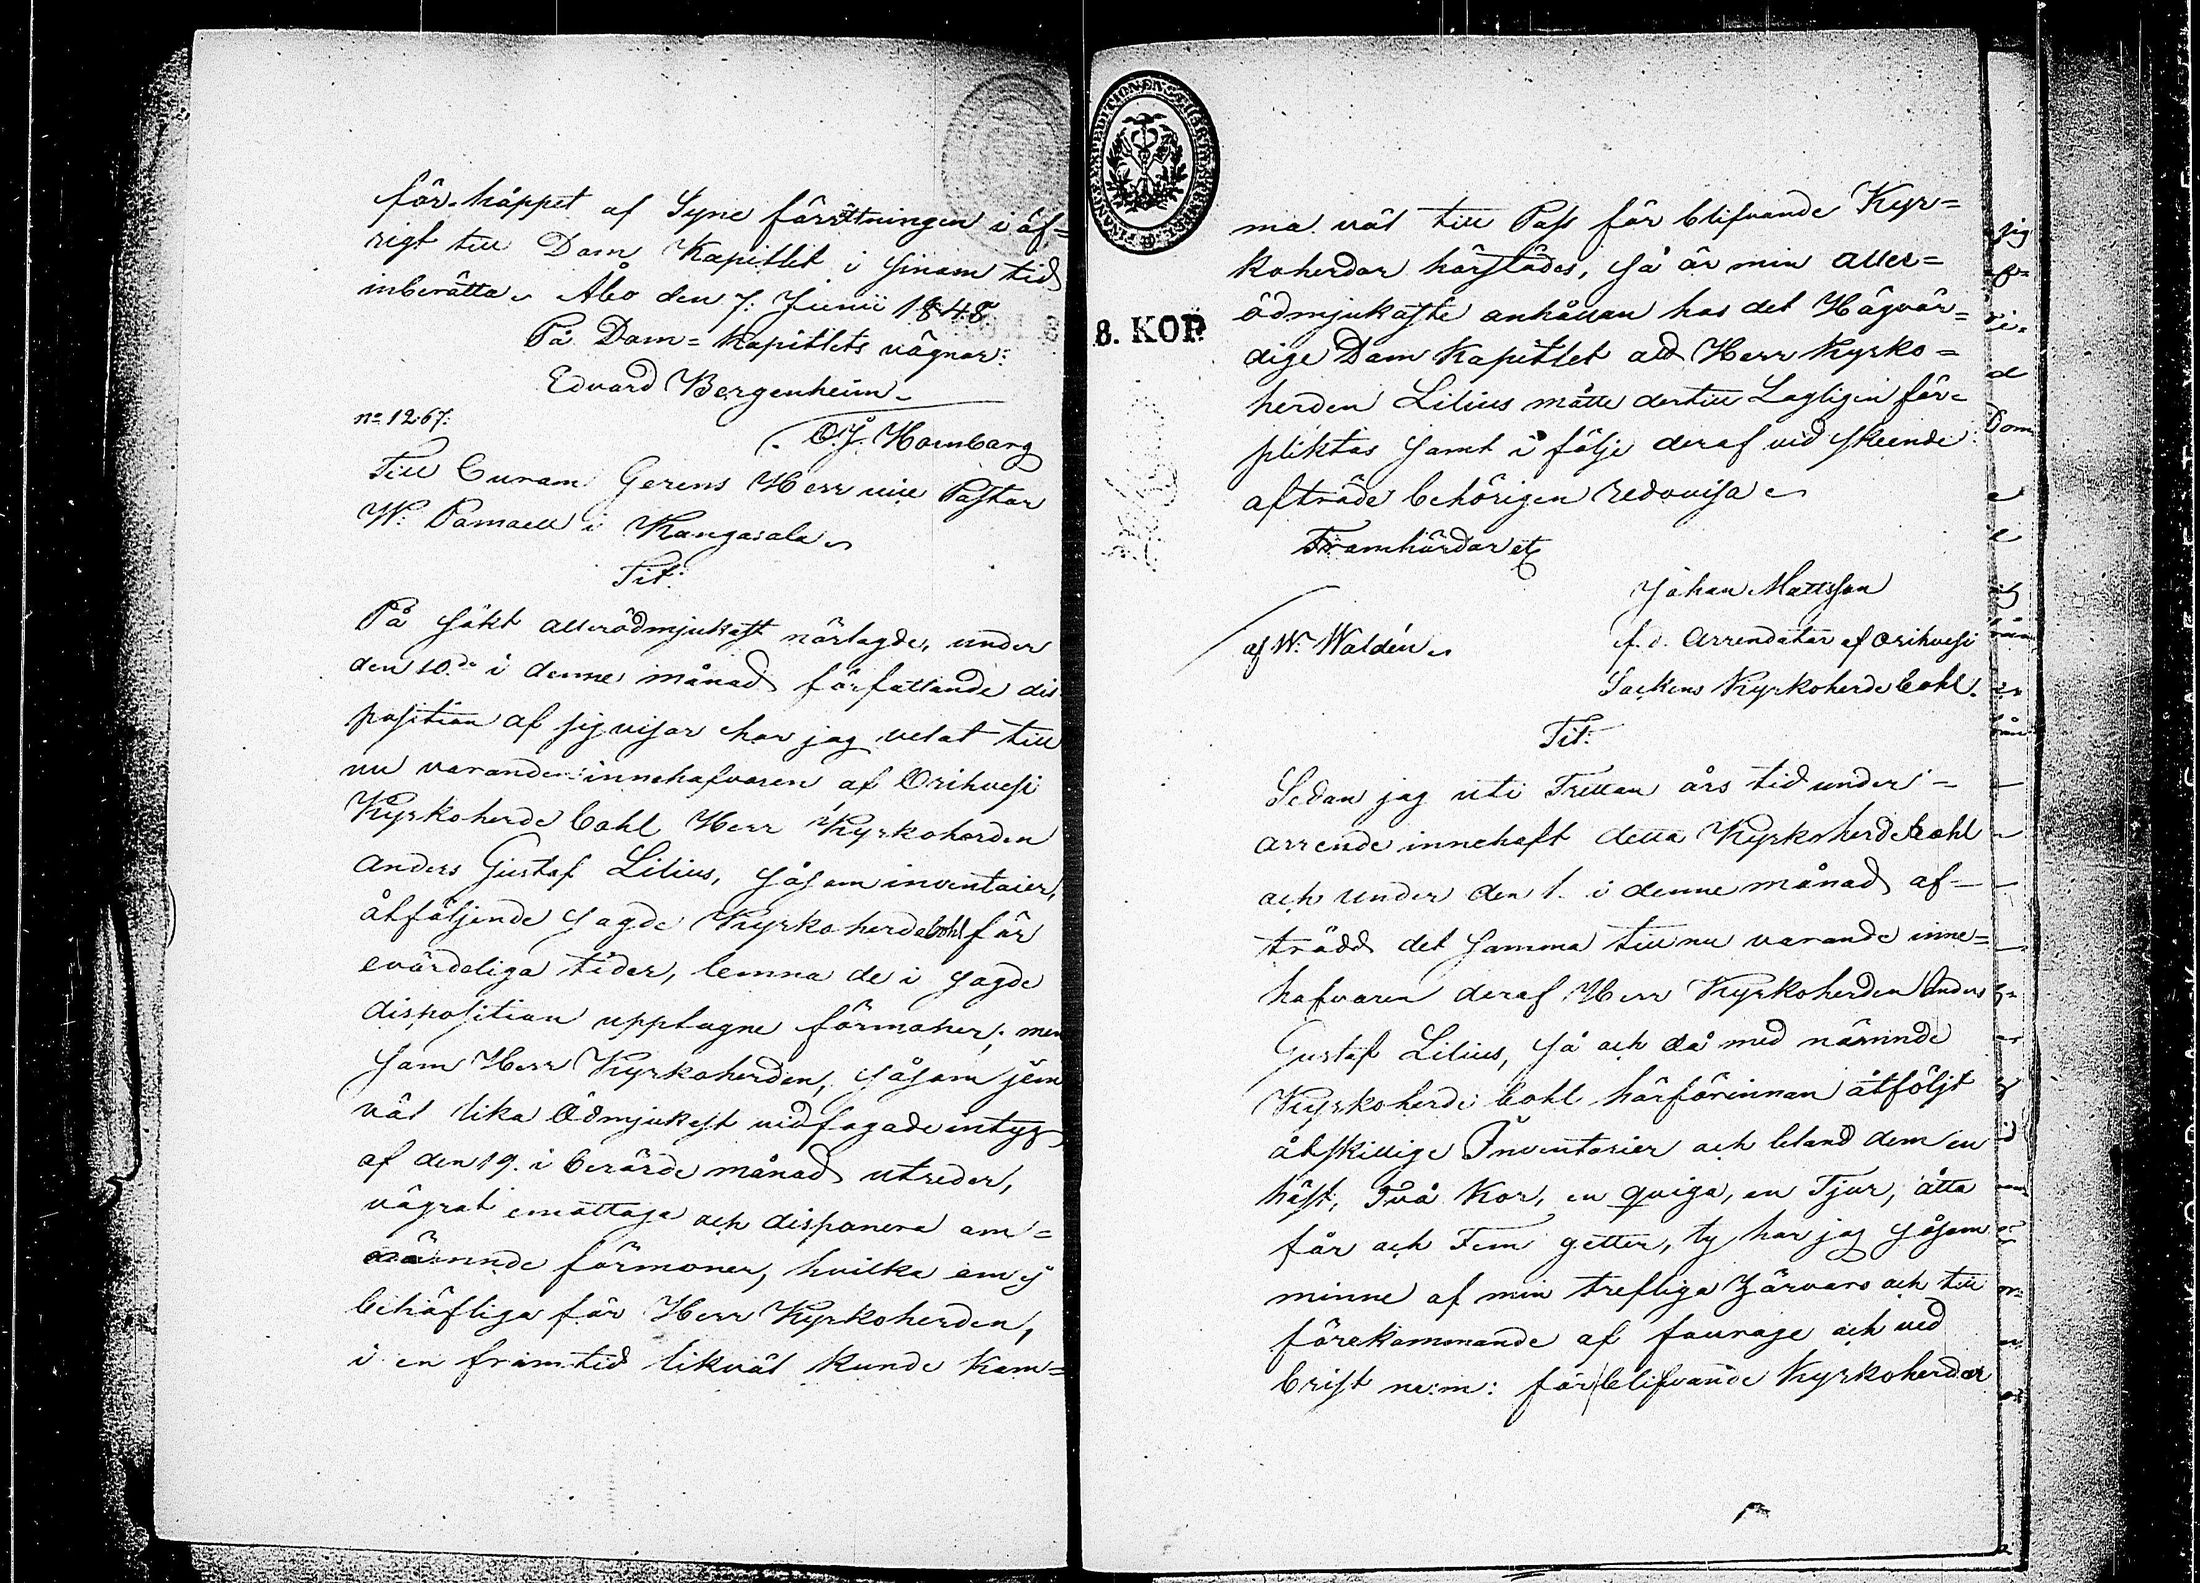 för-håppet af Syne förrättningen i öf=
rigt till Dom Kapitlet i sinom tid
inberätta. Åbo den 7. Junii 1848
På Dom=Kapitlets vägnar:
Edvard Bergenheim
no 1267.
O.J. Hornborg
Till Curam Gerens Herr vice Pastor
W. Pomaell i Kangasala.
Tit:
På sätt allerödmjukast närlagde, under
den 10de i denne månad författande dis
position af sig visar har jag velat till
nu varande innehafvaren af Orihvesi
Kyrkoherde bohl Herr Kyrkoherden
Anders Gustaf Lilius, såsom inventarier,
åtföljende sagde Kyrkoherdebohl för
evärdeliga tider, lemna de i sagde
disposition upptagne förmoner; men
som Herr Kyrkoherden, såsom jem
väl lika ödmjukast vidfogade intyg
af den 19. i berörde månad utreder,
vägrat emottaga och disponera om=
nämnde förmoner, hvilka om ej
behöfliga för Herr Kyrkoherden,
i en framtid likväl kunde kom=
8. KOP.
ma väl till Pass för blifvande Kyr=
koherdar härstädes, så är min aller=
ödmjukaste anhållan hos det Högvär=
dige Dom Kapitlet att Herr Kyrko=
herden Lilius måtte dertill Lagligen för=
pliktas samt i följe deraf vid skeende
afträde behörigen redovisa.
Framhärdar etc
Johan Mattsson
af W. Waldén.
f.d. Arrendator af Orihvesi
Sockens Kyrkoherde bohl.
Tit:
Sedan jag uti Tretton års tid under=
arrende innehaft detta Kyrkoherdebohl
och under den 1. i denne månad af=
trädd det samma till nu varande inne=
hafvaren deraf Herr Kyrkoherden Anders
Gustaf Lilius, så och då med nämnde
Kyrkoherde bohl härförinnan åtföljt
åtskillige Inventarier och bland dem en
häst, Två Kor, en qviga, en Tjur, åtta
får och Fem getter, ty har jag såsom
minne af min trefliga härvaro och till
förekommande af fourage och ved
brist m:m: för blifvande Kyrkoherdar